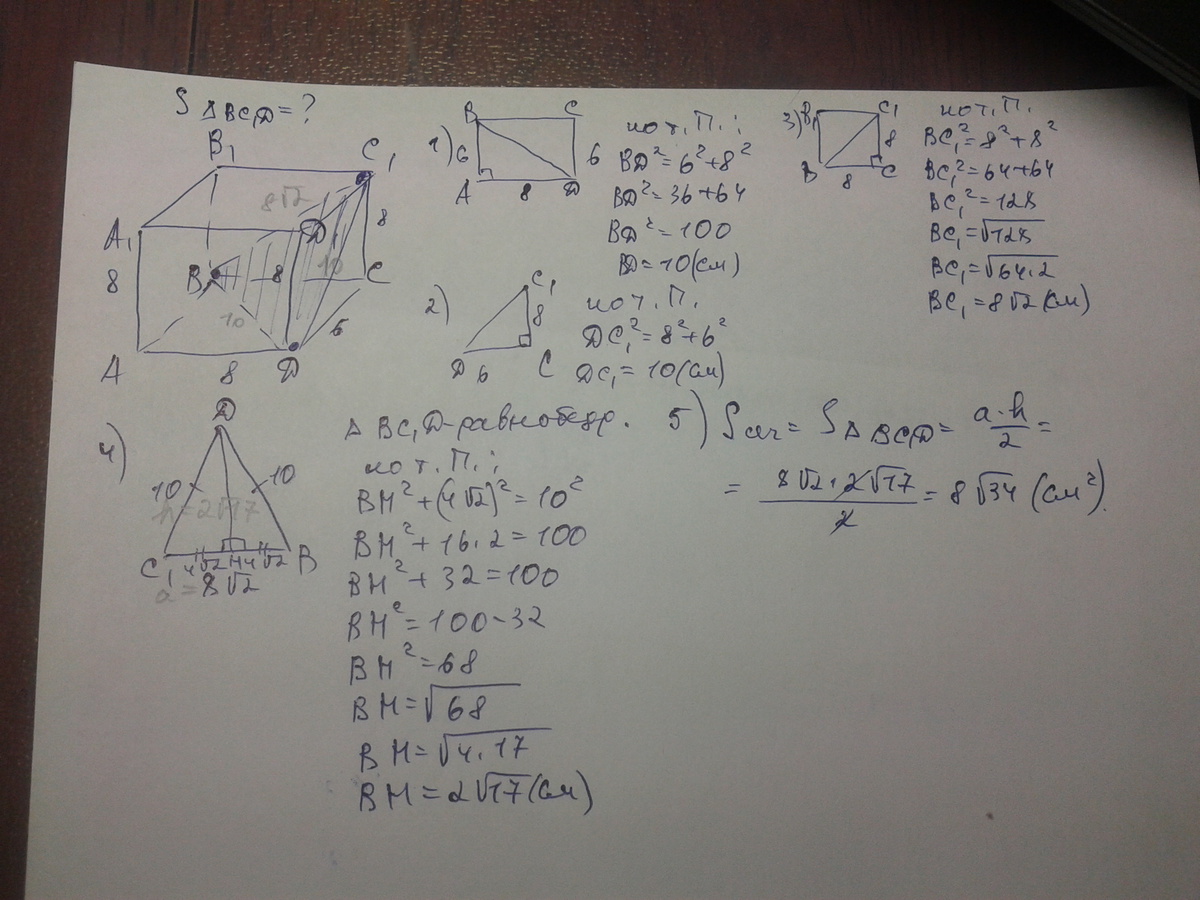 S △BC₁D = ?
B₁
C₁
8√2
A₁
D
8
8
B
8
10
C
10
6
A
8
D
1)
B
C
6
6
A
8
D
по т. П. :
BD² = 6² + 8²
BD² = 36 + 64
BD² = 100
BD = 10 (см)
2)
C₁
8
D
6
C
по т. П.
DC₁² = 8² + 6²
DC₁ = 10 (см)
3)
B₁
C₁
8
B
8
C
по т. П.
BC₁² = 8² + 8²
BC₁² = 64 + 64
BC₁² = 128
BC₁ = √128
BC₁ = √64·2
BC₁ = 8√2 (см)
4)
D
10
10
h = 2√17
C₁
4√2
H
4√2
B
a = 8√2
△ BC₁D - равнобедр.
по т. П. :
BH² + (4√2)² = 10²
BH² + 16·2 = 100
BH² + 32 = 100
BH² = 100 - 32
BH² = 68
BH = √68
BH = √4·17
BH = 2√17 (см)
5) Sсеч = S△BC₁D = a·h/2 =
= 8√2·2√17/2 = 8√34 (см²).